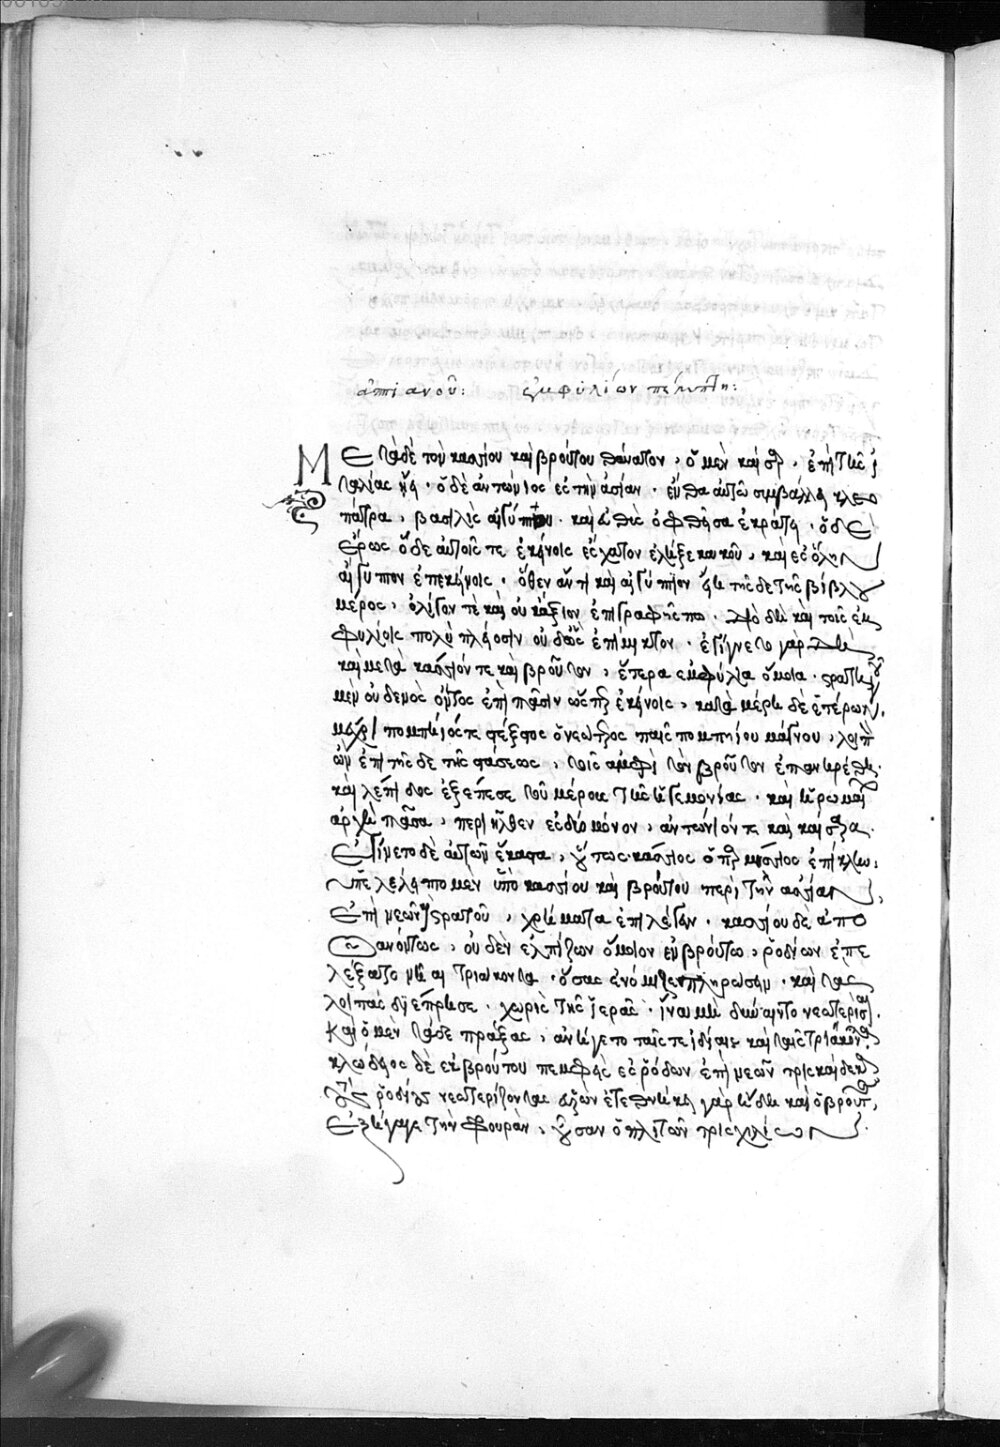 ἀππιανοῦ: ἐμφυλίων πέμπτη:
Μετὰ δὲ τὸν κασσίου καὶ βρούτου θάνατον, ὁ μὲν καῖσαρ, ἐπὶ τῆς ἰ
ταλίας ᾔει· ὁ δὲ ἀντώνιος ἐς τὴν ἀσίαν· ἔνθα αὐτῷ συμβάλλει κλεο
πάτρα, βασιλὶς αἰγύπτου· καὶ εὐθὺς ὀφθεῖσα ἐκράτει· ὁ δὲ
ἔρως ὅδε αὐτοῖς τε ἐκείνοις ἐς ἔσχατον ἔληξε κακοῦ, καὶ ἐς ὅλην
αἴγυπτον ἐπ' ἐκείνοις· ὅθεν ἄν τι καὶ αἰγύπτιον εἴη τῆσδε τῆς βίβλου
μέρος, ὀλίγον τε καὶ οὐκ ἄξιον ἐπιγραφῆς πω· διὸ δὴ καὶ τοῖς ἐμ
φυλίοις πολὺ πλείοσιν οὖσιν ἐπίμικτον· ἐγίγνετο γὰρ δὴ
καὶ μετὰ κάσσιόν τε καὶ βροῦτον, ἕτερα ἐμφύλια ὅμοια· στρατηγοῦ
μὲν οὐδενὸς ὄντος ἐπὶ πᾶσιν ὥσπερ ἐκείνοις, κατὰ μέρη δὲ ἑτέρων,
μέχρι πομπήιός τε σέξστος ὁ νεώτερος παῖς πομπηίου μάγνου, λοιπ
ὼν ἐπὶ τῆσδε τῆς στάσεως, τοῖς ἀμφὶ τὸν βροῦτον ἐπανῃρέθη·
καὶ λέπιδος ἐξέπεσε τοῦ μέρους τῆς ἡγεμονίας· καὶ ἡ ῥωμαίων
ἀρχὴ πᾶσα, περιῆλθεν ἐς δύο μόνον, ἀντώνιόν τε καὶ καίσαρα·
ἐγίνετο δὲ αὐτῶν ἕκαστα, οὕτως· κάσσιος ὁ παρμήσιος ἐπίκλην,
ὑπελέλειπτο μὲν ὑπὸ κασσίου καὶ βρούτου περὶ τὴν ἀσίαν,
ἐπὶ νεῶν καὶ στρατοῦ, χρήματα ἐπιλέγειν· κασσίου δὲ ἀπο
θανόντος, οὐδὲν ἐλπίζων ὅμοιον ἐν βρούτῳ, ῥοδίων ἐπε
λέξατο ναῦς τριάκοντα· ὅσας ἐνόμιζεν πληρώσειν· καὶ τὰς
λοιπὰς διέπρησε· χωρὶς τῆς ἱερᾶς· ἵνα μὴ δύναιντο νεωτερίσαι
καὶ ὁ μὲν τάδε πράξας, ἀνήγετο ταῖς τε ἰδίαις καὶ ταῖς τριάκοντα
κλώδιος δὲ ἐκ βρούτου πεμφθεὶς ἐς ῥόδον ἐπὶ νεῶν τρισκαίδεκα
τοὺς ῥοδίους νεωτερίζοντας εὑρών ἐτεθνήκει γὰρ ἤδη καὶ ὁ βροῦτος,
ἐξήγαγε τὴν φρουρὰν, οὖσαν ὁπλιτῶν τρισχιλίων.